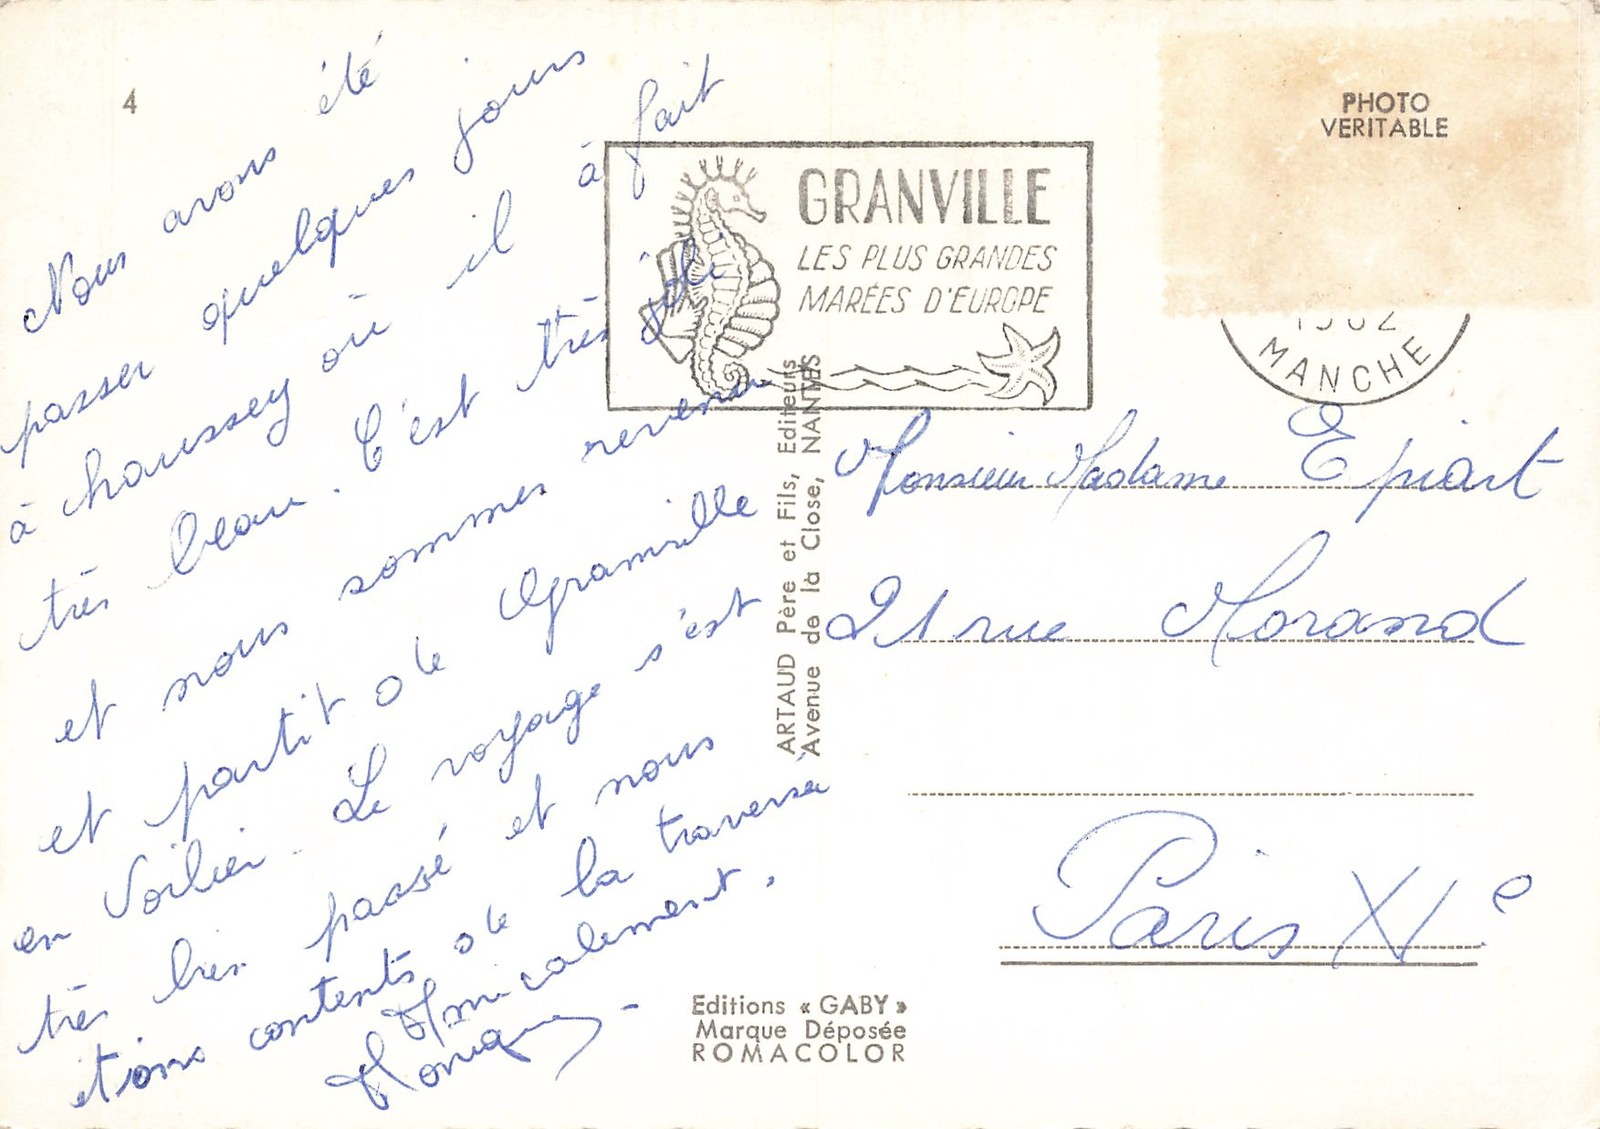 4
Nous avons été
passer quelques jours
à chaussey où il à fait
très beau. C'est très joli
et nous sommes revenu
et partit de Granville
en Voilier. Le voyage s'est
très bien passé et nous
étions contents de la traversé
Amicalement,
Monique
GRANVILLE
LES PLUS GRANDES
MARÉES D'EUROPE
PHOTO
VERITABLE
1962
MANCHE
ARTAUD Père et Fils, Editeurs
Avenue de la Close, NANTES
Monsieur Madame Epiart
21 rue Morand
Paris XIe
Editions « GABY »
Marque Déposée
ROMACOLOR